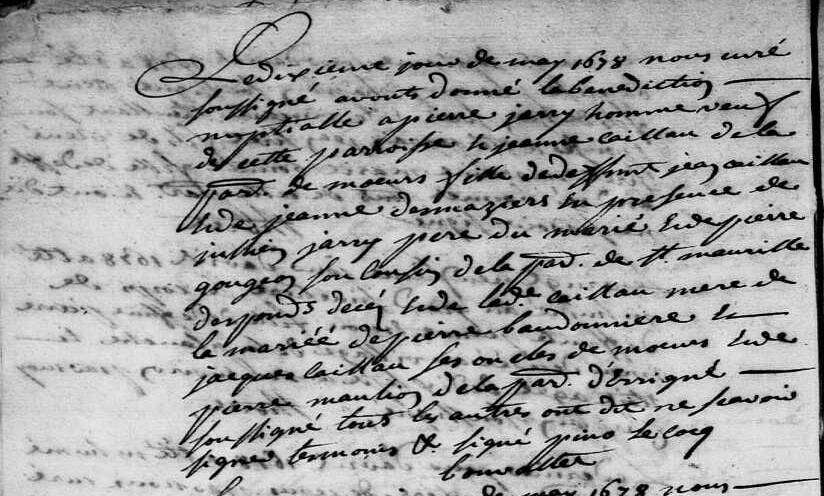 Le dixieme jour de may 1678 nous curé
soussigné avons donné la benediction
nuptialle a pierre jarry homme veuf
de cette parroisse & jeanne caillau de la
par. de moeurs fille de deffunt jean caillau
& de jeanne desmaziers en presence de
jullien jarry pere du marié & de pierre
gougeon son cousin de la par. de st maurille
des ponds de cé & de lad. caillau mere de
la mariéé de pierre baudonniere &
jacques caillau ses oncles de moeurs & de
pierre maulion de la par. d'Errigné
soussigné tous les autres ont dit ne scavoir
signer &. signé pino le cocq
de may 1678 nous